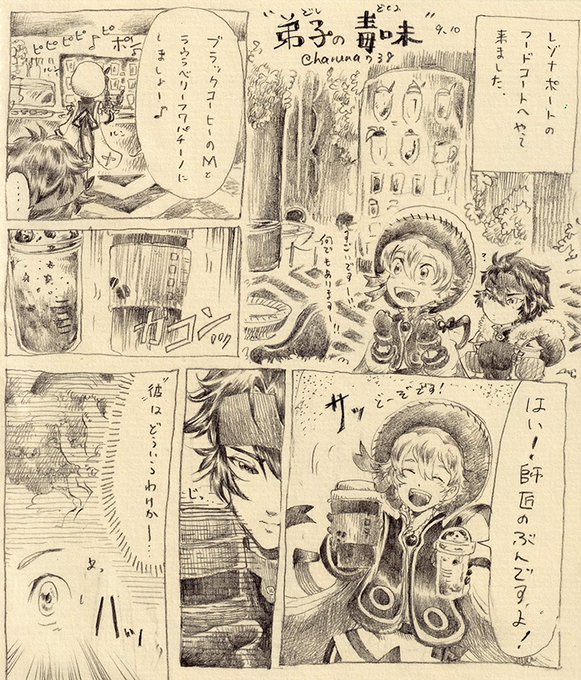 “弟子の毒味”
でし どくみ
9.10
レゾナポートの
フードコートへやて
来ました。
すごいです!!
何でもあります!!
?
ピピピピ♪ピポ♪
ブラックコーヒーのMと
ラウラベリーフワパチーノに
しましょー♪
ルン
ルン
……
ガコン
はい!師匠のぶんですよ!
どーぞです!
サッ
じっ…
彼はどういうわけか—…